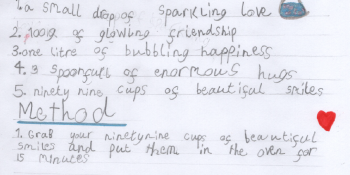 1. a small drop of sparkling love
2. 100g of glowing friendship
3. one litre of bubbling happiness
4. 3 spoonfull of enormous hugs
5. ninety nine cups of beautiful smiles
Method
1. Grab your ninetynine cups of beautiful
smiles and put them in the oven for
15 minutes